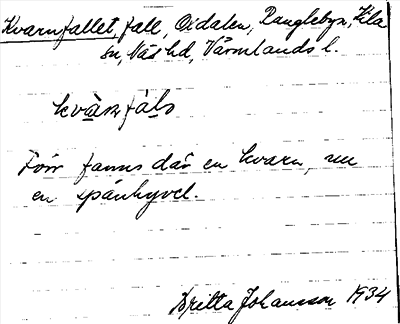 Kvarnfallet, fall, Ordalen, Ranglebyn, Kila
sn, Näs hd, Värmlands l.
kvà̱ṇfàḻs
Förr fanns där en kvarn, nu
en spånhyvel.
Britta Johansson 1934